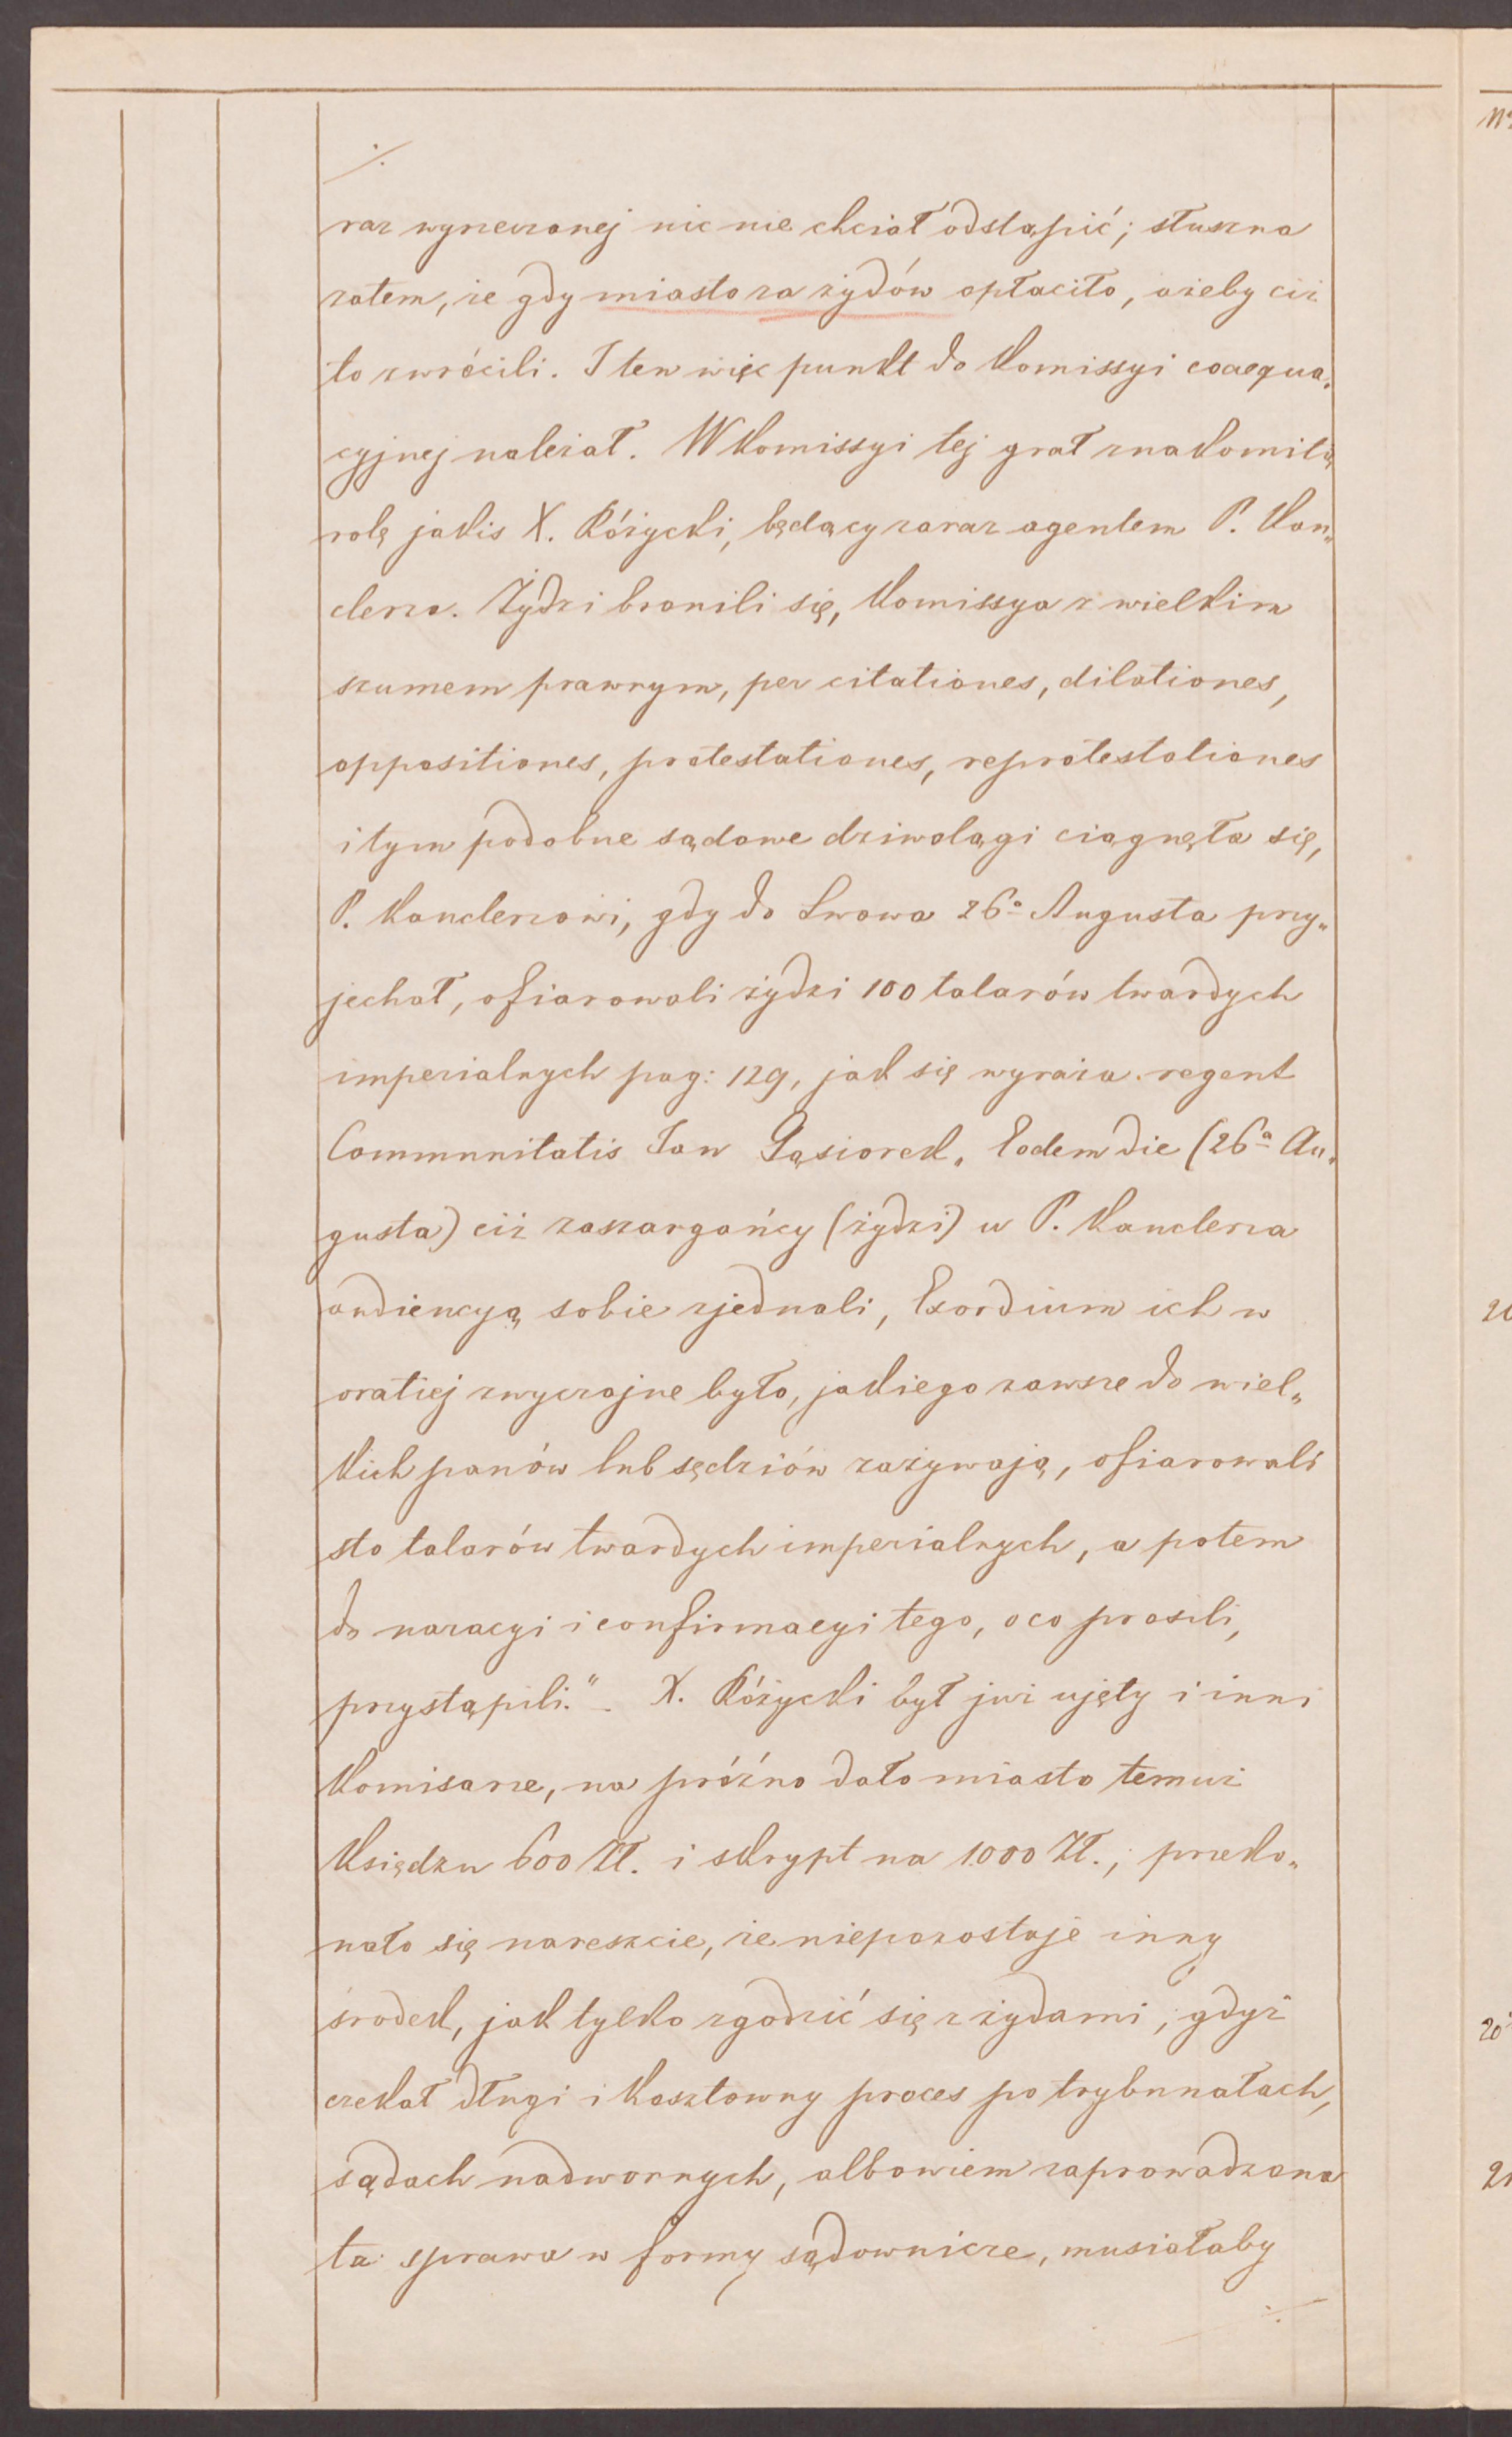 ·/.
raz wyrzeczonej nic nie chciał odstąpić; słuszna
zatem, że gdy miasto za żydów opłaciło, ażeby ciż
to zwrócili. I ten więc punkt do Komissyi coaequa„
cyjnej należał. W Komissyi tej grał znakomitą
rolę jakis X. Różycki, będący zaraz agentem P. Kan„
clerza. Żydzi bronili się, Komissya z wielkim
szumem prawnym, per citationes, dilationes,
oppositiones, protestationes, reprotestationes
i tym podobne sądowe dziwolągi ciągnęła się,
P. Kanclerzowi, gdy do Lwowa 26ª Augusta przy„
jechał, ofiarowali żydzi 100 talarów twardych
imperialnych pag: 129, jak się wyraża regent
Communitatis Jan Gąsiorek. Eodem die (26ª Au„
gusta) ciż zaszargańcy (żydzi) u P. Kanclerza
audiencyą sobie zjednali, Exordium ich w
oratiej zwyczajne było, jakiego zawsze do wiel„
kich panów lub sędziów zażywają, ofiarowali
sto talarów twardych imperialnych, a potem
do naracyi i confirmacyi tego, o co prosili,
przystąpili." - X. Różycki był już ujęty i inni
Komisarze, na próżno dało miasto temuż
Księdzu 600 Zł. i skrypt na 1000 Zł.; przeko„
nało się nareszcie, że niepozostaje inny
środek, jak tylko zgodzić się z żydami, gdyż
czekał długi i kosztowny proces po trybunałach,
sądach nadwornych, albowiem zaprowadzona
ta sprawa w formy sądownicze, musiałaby
·/.